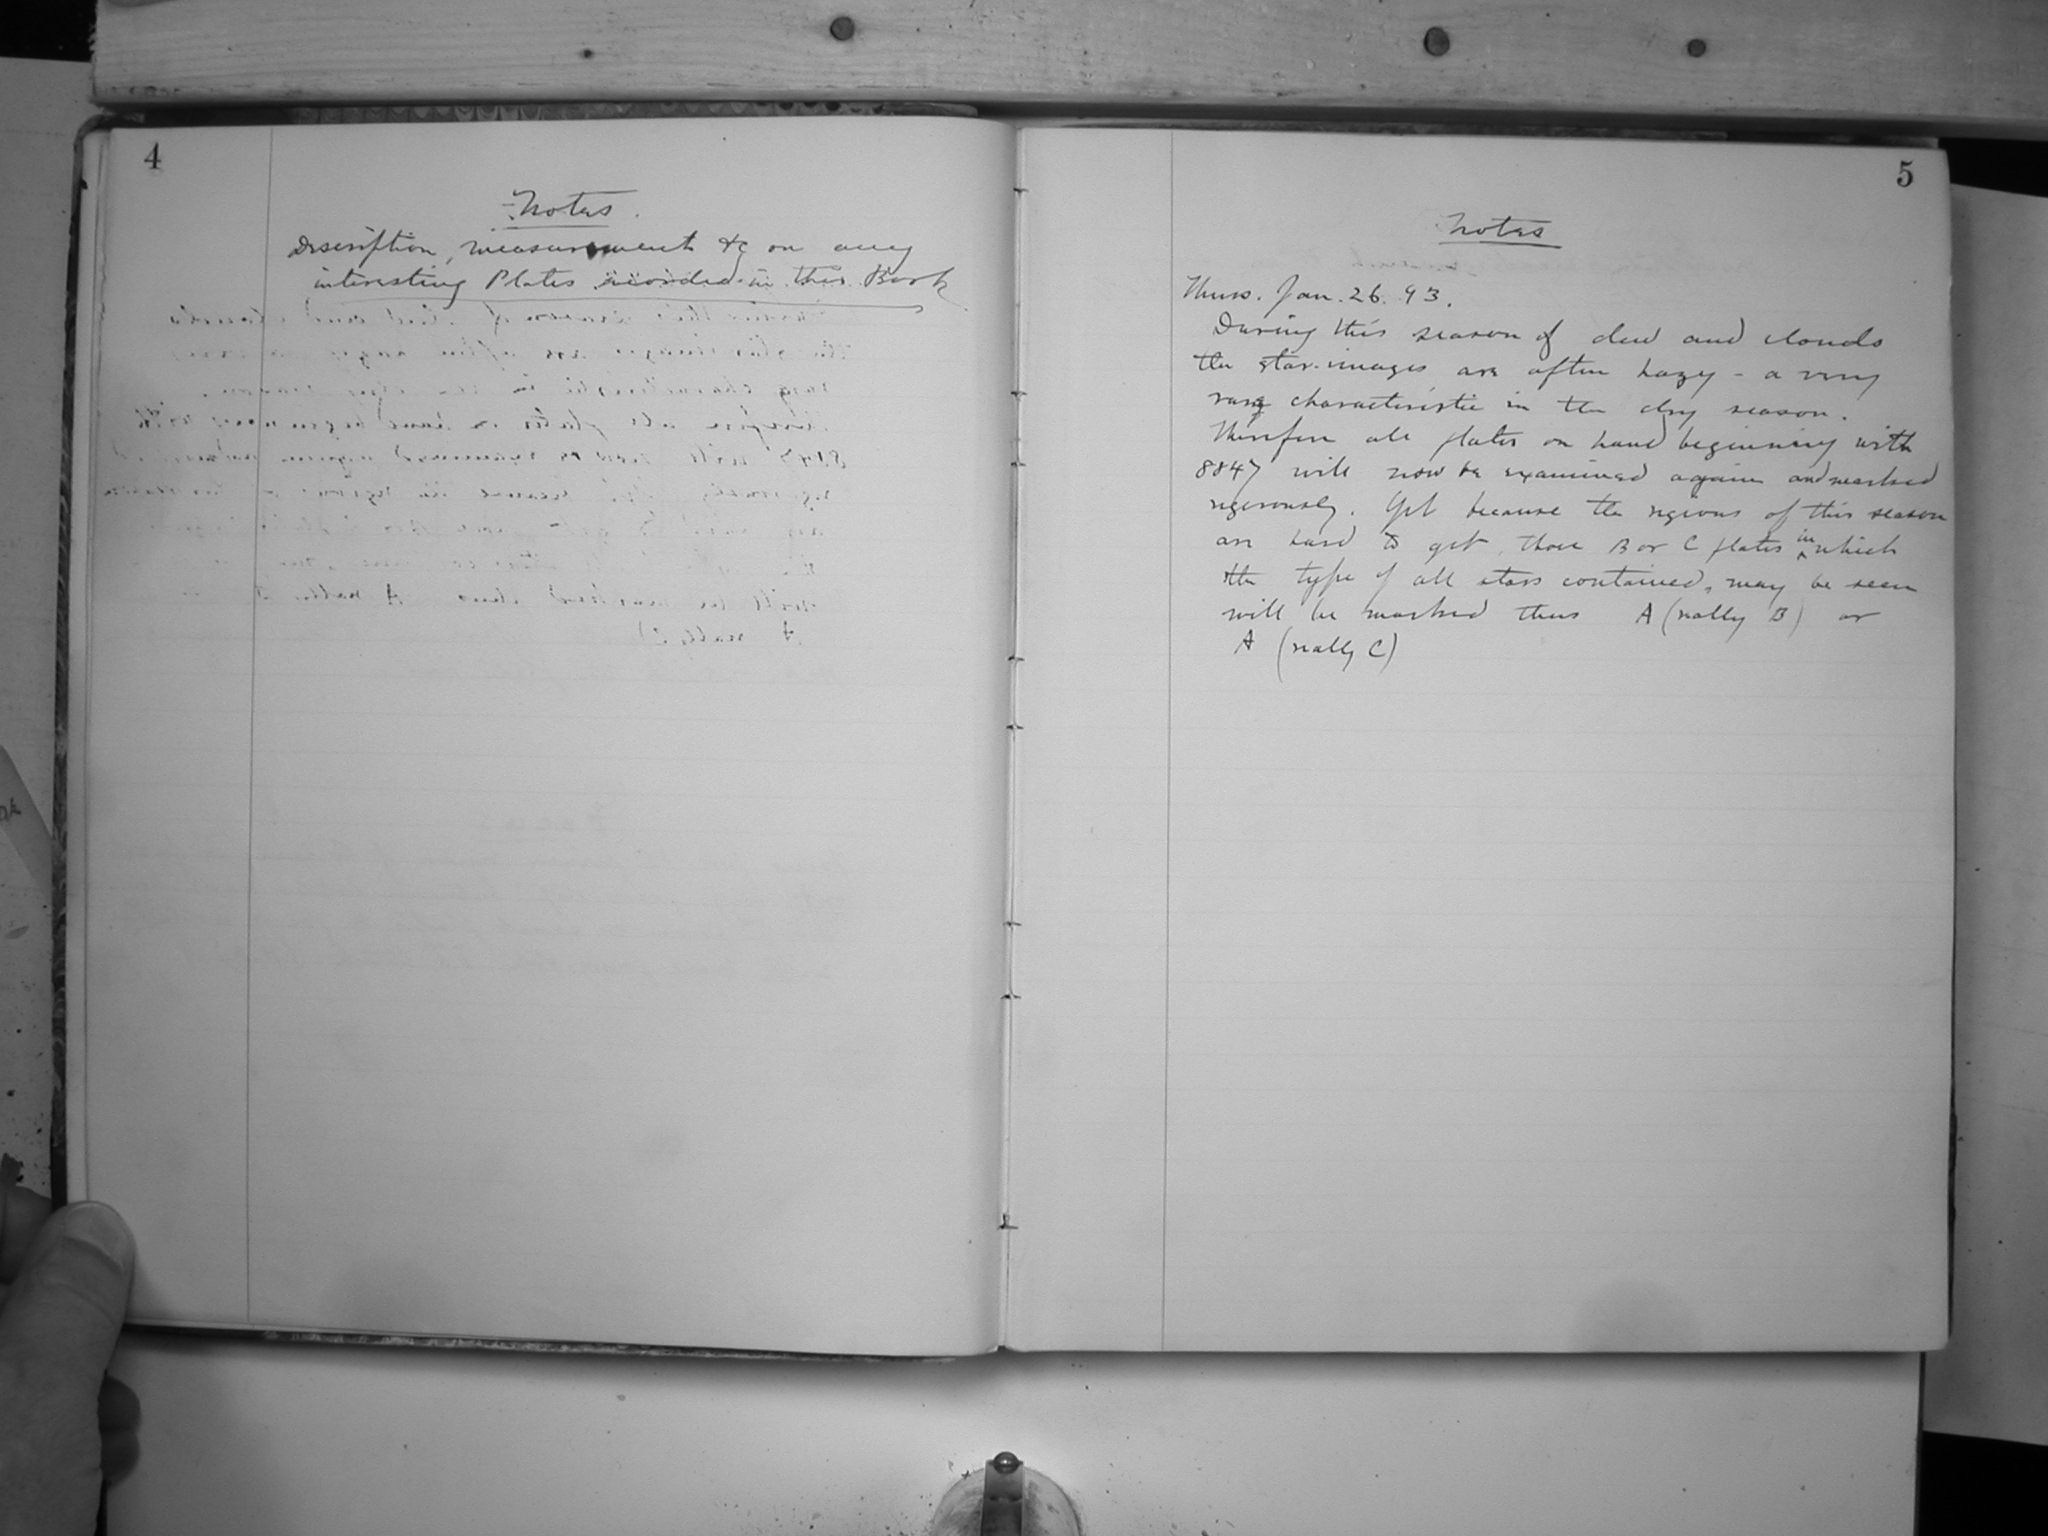 4
Notes.
Description, measurement &c on any
interesting Plates recorded in this Book
5
Notes
Thurs. Jan. 26. 93.
During this season of dew and clouds
the star-images are often hazy - a very
rare characteristic in the dry season.
Therefore all plates on hand beginning with
8847 will now be examined again and marked
rigorously. Yet because the regions of this season
are hard to get, those B or C plates in which
the type of all stars contained, may be seen
will be marked thus A (really B) or
A (really C)